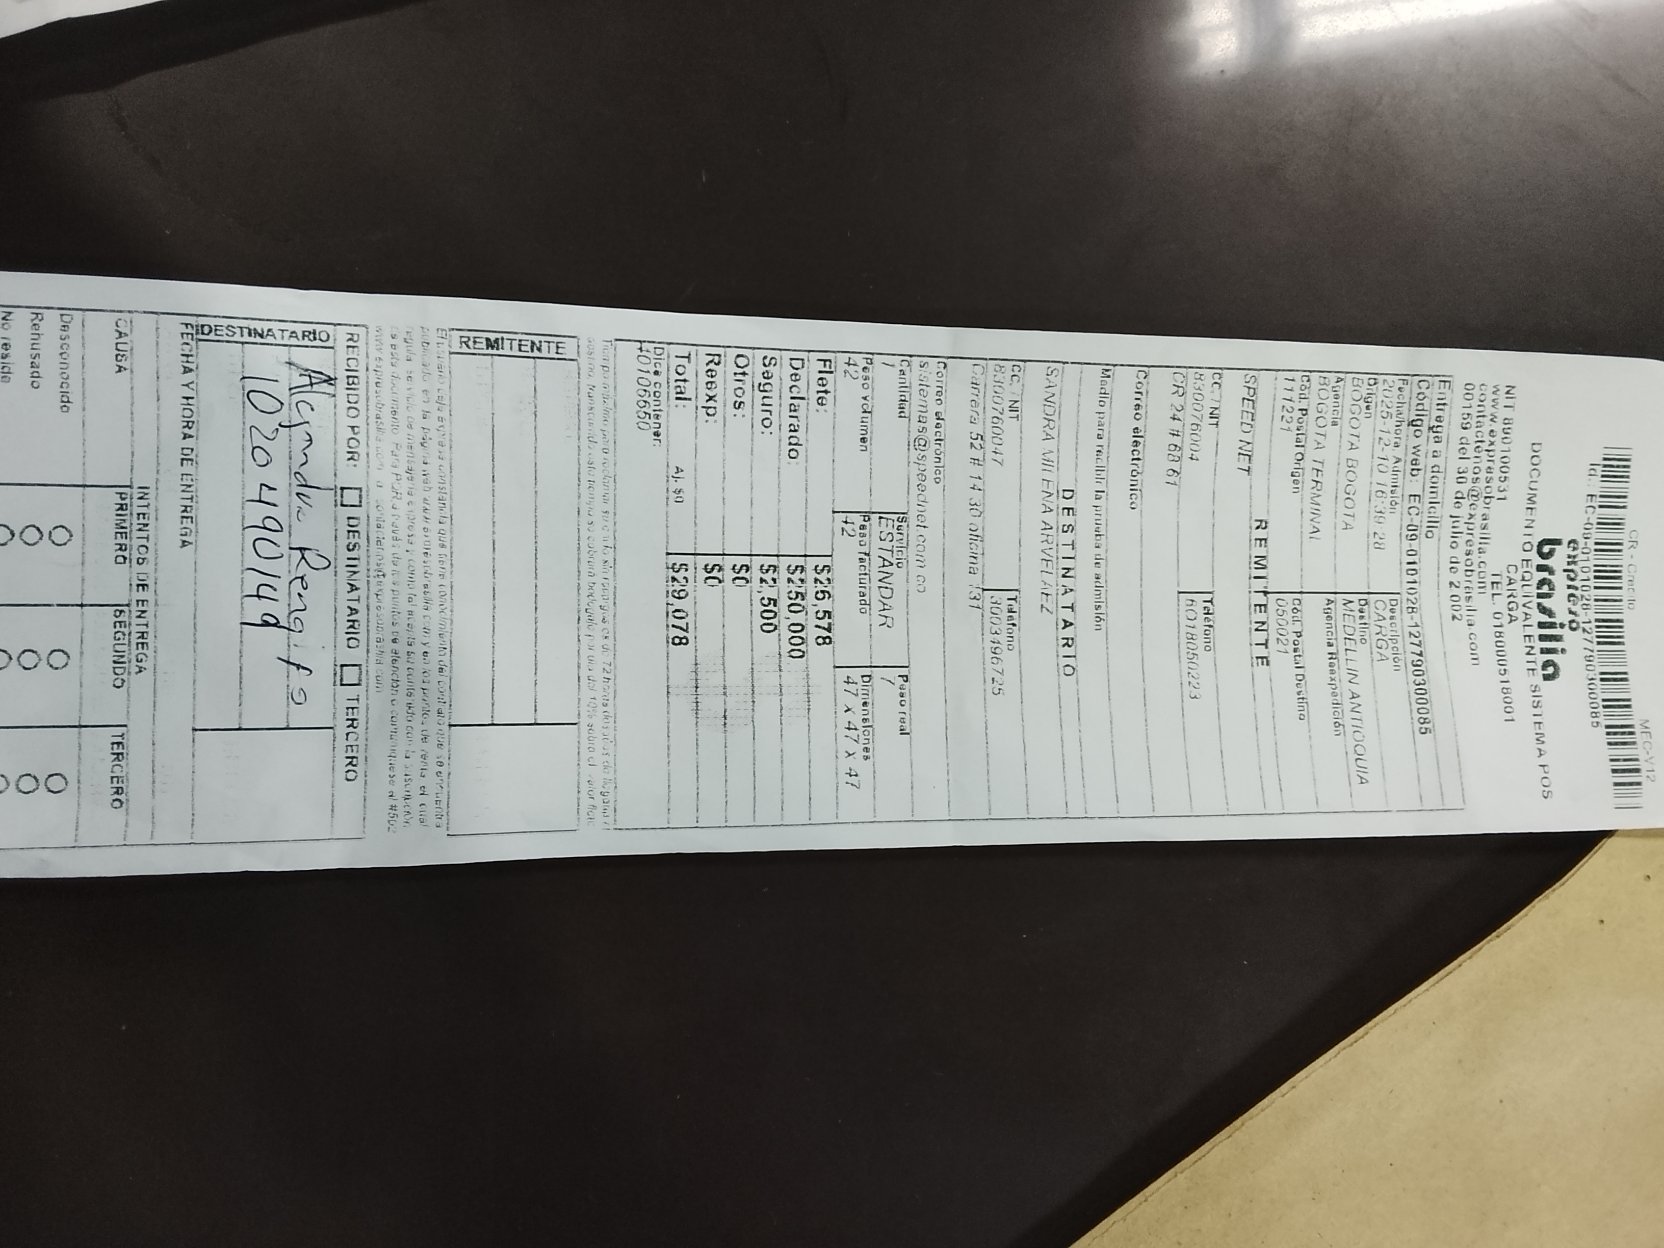 CR - Crédito
MEC-V12
Id.: EC-09-0101028-127790300085
expreso
brasilia
DOCUMENTO EQUIVALENTE SISTEMA POS
CARGA
NIT 890100531 TEL. 018000518001
www.expresobrasilia.com
contactenos@expresobrasilia.com
00159 del 30 de julio de 2002
Entrega a domicilio
Código web: EC-09-0101028-127790300085
Fecha/hora Admisión Descripción
2025-12-10 16:39:28 CARGA
Origen Destino
BOGOTA BOGOTA MEDELLIN ANTIOQUIA
Agencia Agencia Reexpedición
BOGOTA TERMINAL
Cód. Postal Origen Cód. Postal Destino
111221 050021
REMITENTE
SPEED NET
CC / NIT Teléfono
830076004 6018050223
CR 24 # 68 61
Correo electrónico
Medio para recibir la prueba de admisión
DESTINATARIO
SANDRA MILENA ARVELAEZ
CC. NIT Teléfono
8300760047 3003496725
Carrera 52 # 14 30 oficina 131
Correo electrónico
sistemas@speednet.com.co
Cantidad Servicio Peso real
1 ESTANDAR 7
Peso volumen Peso facturado Dimensiones
42 42 47 x 47 x 47
Flete: $26,578
Declarado: $250,000
Seguro: $2,500
Otros: $0
Reexp: $0
Total: Aj. $0 $29,078
Dice contener:
REMITENTE
RECIBIDO POR: DESTINATARIO TERCERO
DESTINATARIO
Rengifo
1020490149
FECHA Y HORA DE ENTREGA
INTENTOS DE ENTREGA
CAUSA PRIMERO SEGUNDO TERCERO
Desconocido
Rehusado
No reside